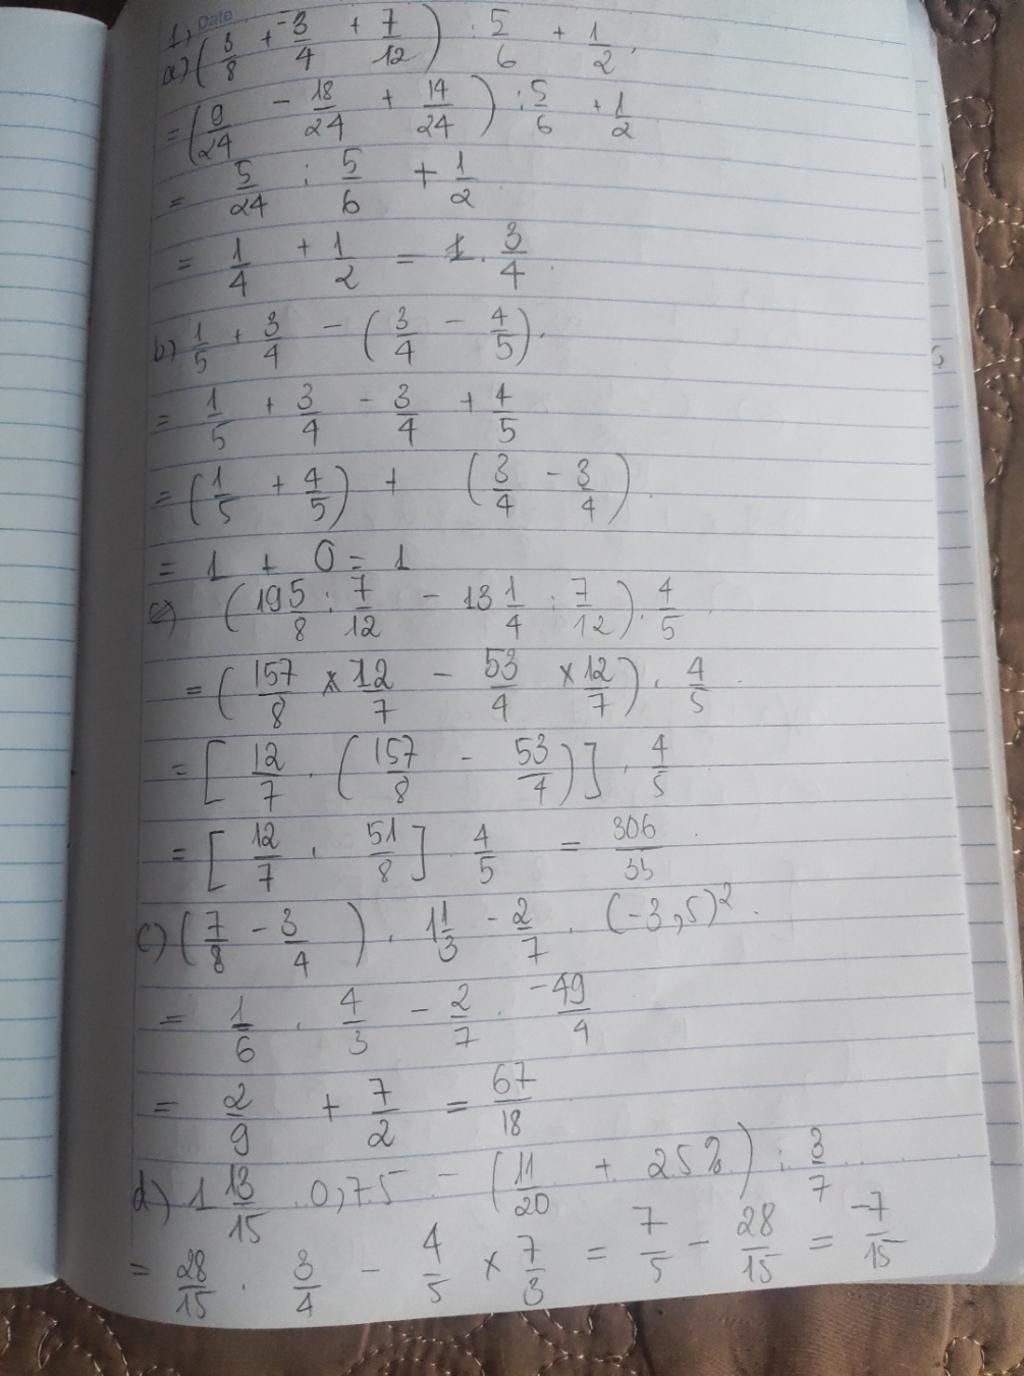 Date
1,
a) (3/8 + -3/4 + 7/12) : 5/6 + 1/2.
= (9/24 - 18/24 + 14/24) : 5/6 + 1/2
= 5/24 : 5/6 + 1/2
= 1/4 + 1/2 = 1. 3/4.
b) 1/5 + 3/4 - (3/4 - 4/5).
= 1/5 + 3/4 - 3/4 + 4/5
= (1/5 + 4/5) + (3/4 - 3/4).
= 1 + 0 = 1
c) (19 5/8 : 7/12 - 13 1/4 : 7/12) . 4/5
= (157/8 × 12/7 - 53/4 × 12/7) . 4/5
= [12/7 . (157/8 - 53/4)] . 4/5
= [12/7 . 51/8] . 4/5 = 306/35
c) (7/8 - 3/4) . 1 1/3 - 2/7 . (-3,5)².
= 1/6 . 4/3 - 2/7 . -49/4
= 2/9 + 7/2 = 67/18
d) 1 13/15 . 0,75 - (11/20 + 25%) : 3/7
= 28/15 . 3/4 - 4/5 × 7/3 = 7/5 - 28/15 = -7/15